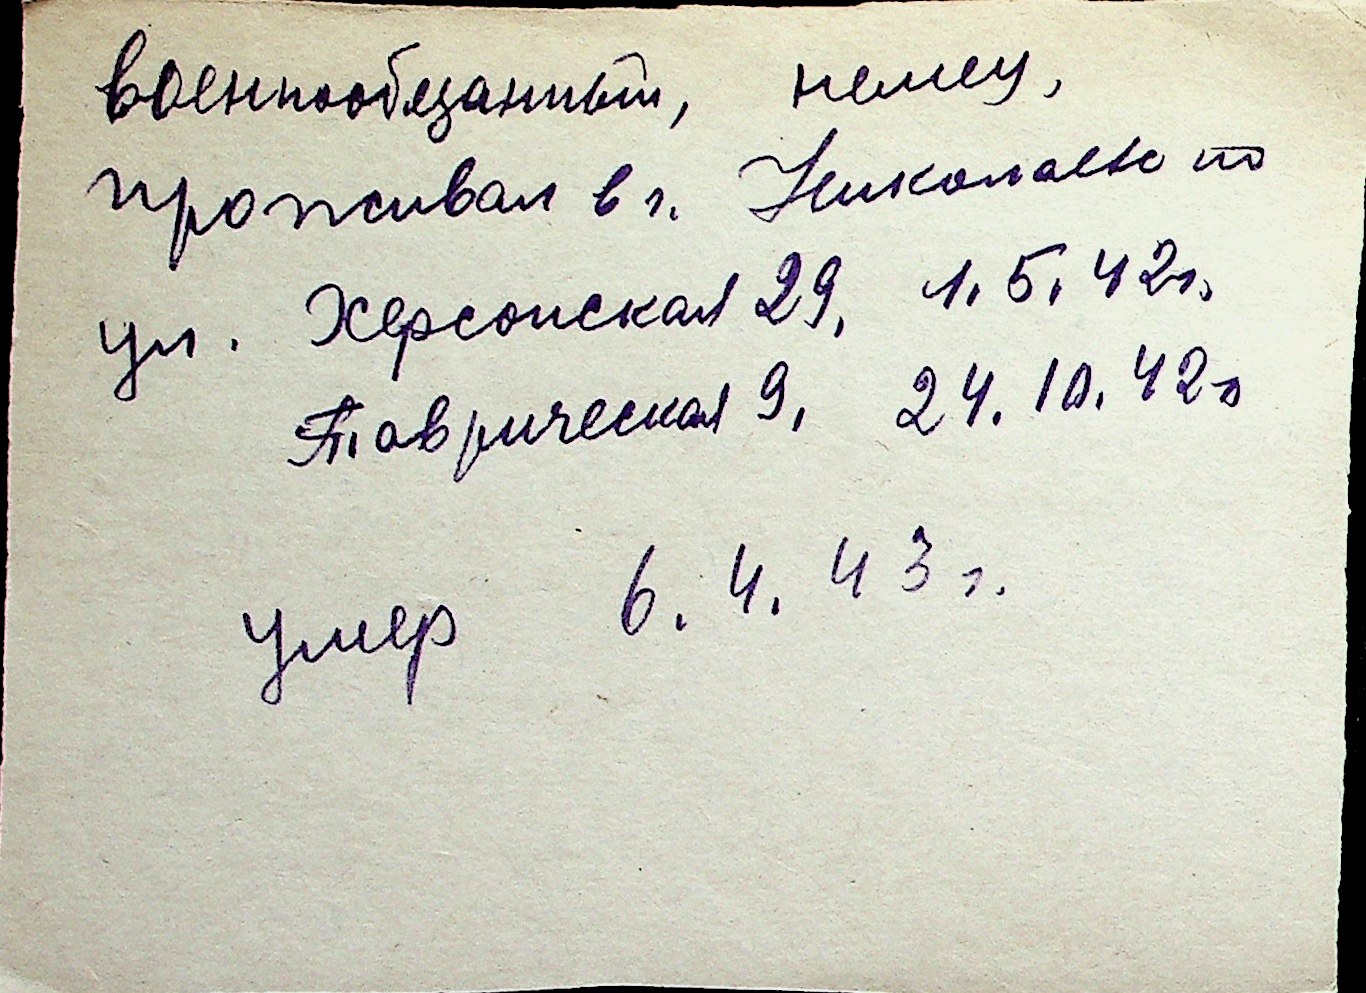 военнообязанный, немец,
проживал в г. Николаеве по
ул. Херсонская 29, 1.5.42г.
Таврическая 9, 24.10.42г
умер 6.4.43г.